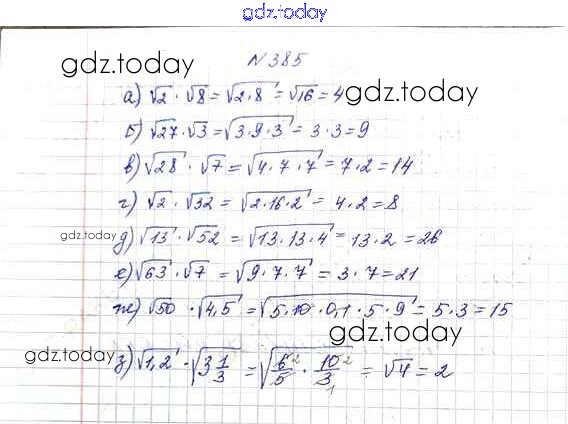 gdz.today
№385
gdz.today
а) √2 · √8 = √2·8 = √16 = 4
gdz.today
б) √27 · √3 = √3·9·3 = 3·3=9
в) √28 · √7 = √4·7·7 = 7·2=14
г) √2 · √32 = √2·16·2 = 4·2=8
gdz.today
д) √13 · √52 = √13·13·4 = 13·2 = 26
е) √63 · √7 = √9·7·7 = 3·7=21
ж) √50 · √4,5 = √5·10·0,1·5·9 = 5·3=15
gdz.today
gdz.today
з) √1,2 · √3 1/3 = √6/5 · 10/3 = √4 = 2